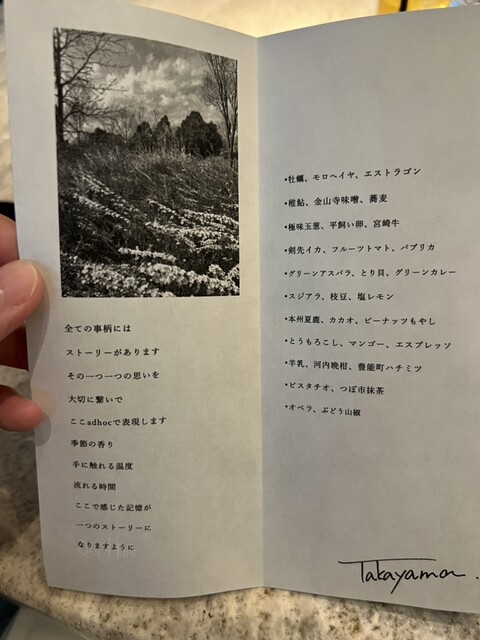 全ての事柄には
ストーリーがあります
その一つ一つの思いを
大切に繋いで
ここadhocで表現します
季節の香り
手に触れる温度
流れる時間
ここで感じた記憶が
一つのストーリーに
なりますように
•牡蠣、モロヘイヤ、エストラゴン
•稚鮎、金山寺味噌、蕎麦
•極味玉葱、平飼い卵、宮崎牛
•剣先イカ、フルーツトマト、パプリカ
•グリーンアスパラ、とり貝、グリーンカレー
•スジアラ、枝豆、塩レモン
•本州夏鹿、カカオ、ピーナッツもやし
•とうもろこし、マンゴー、エスプレッソ
•羊乳、河内晩柑、豊能町ハチミツ
•ピスタチオ、つぼ市抹茶
•オペラ、ぶどう山椒
Takayama.